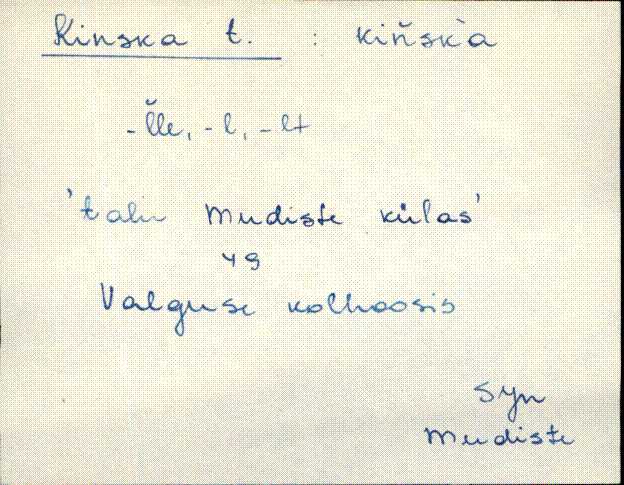 Kinska t. : kiňskà
-l̆le, -l, -lt
'talu Mudiste külas'
49
Valguse kolhoosis
SJn
Mudiste